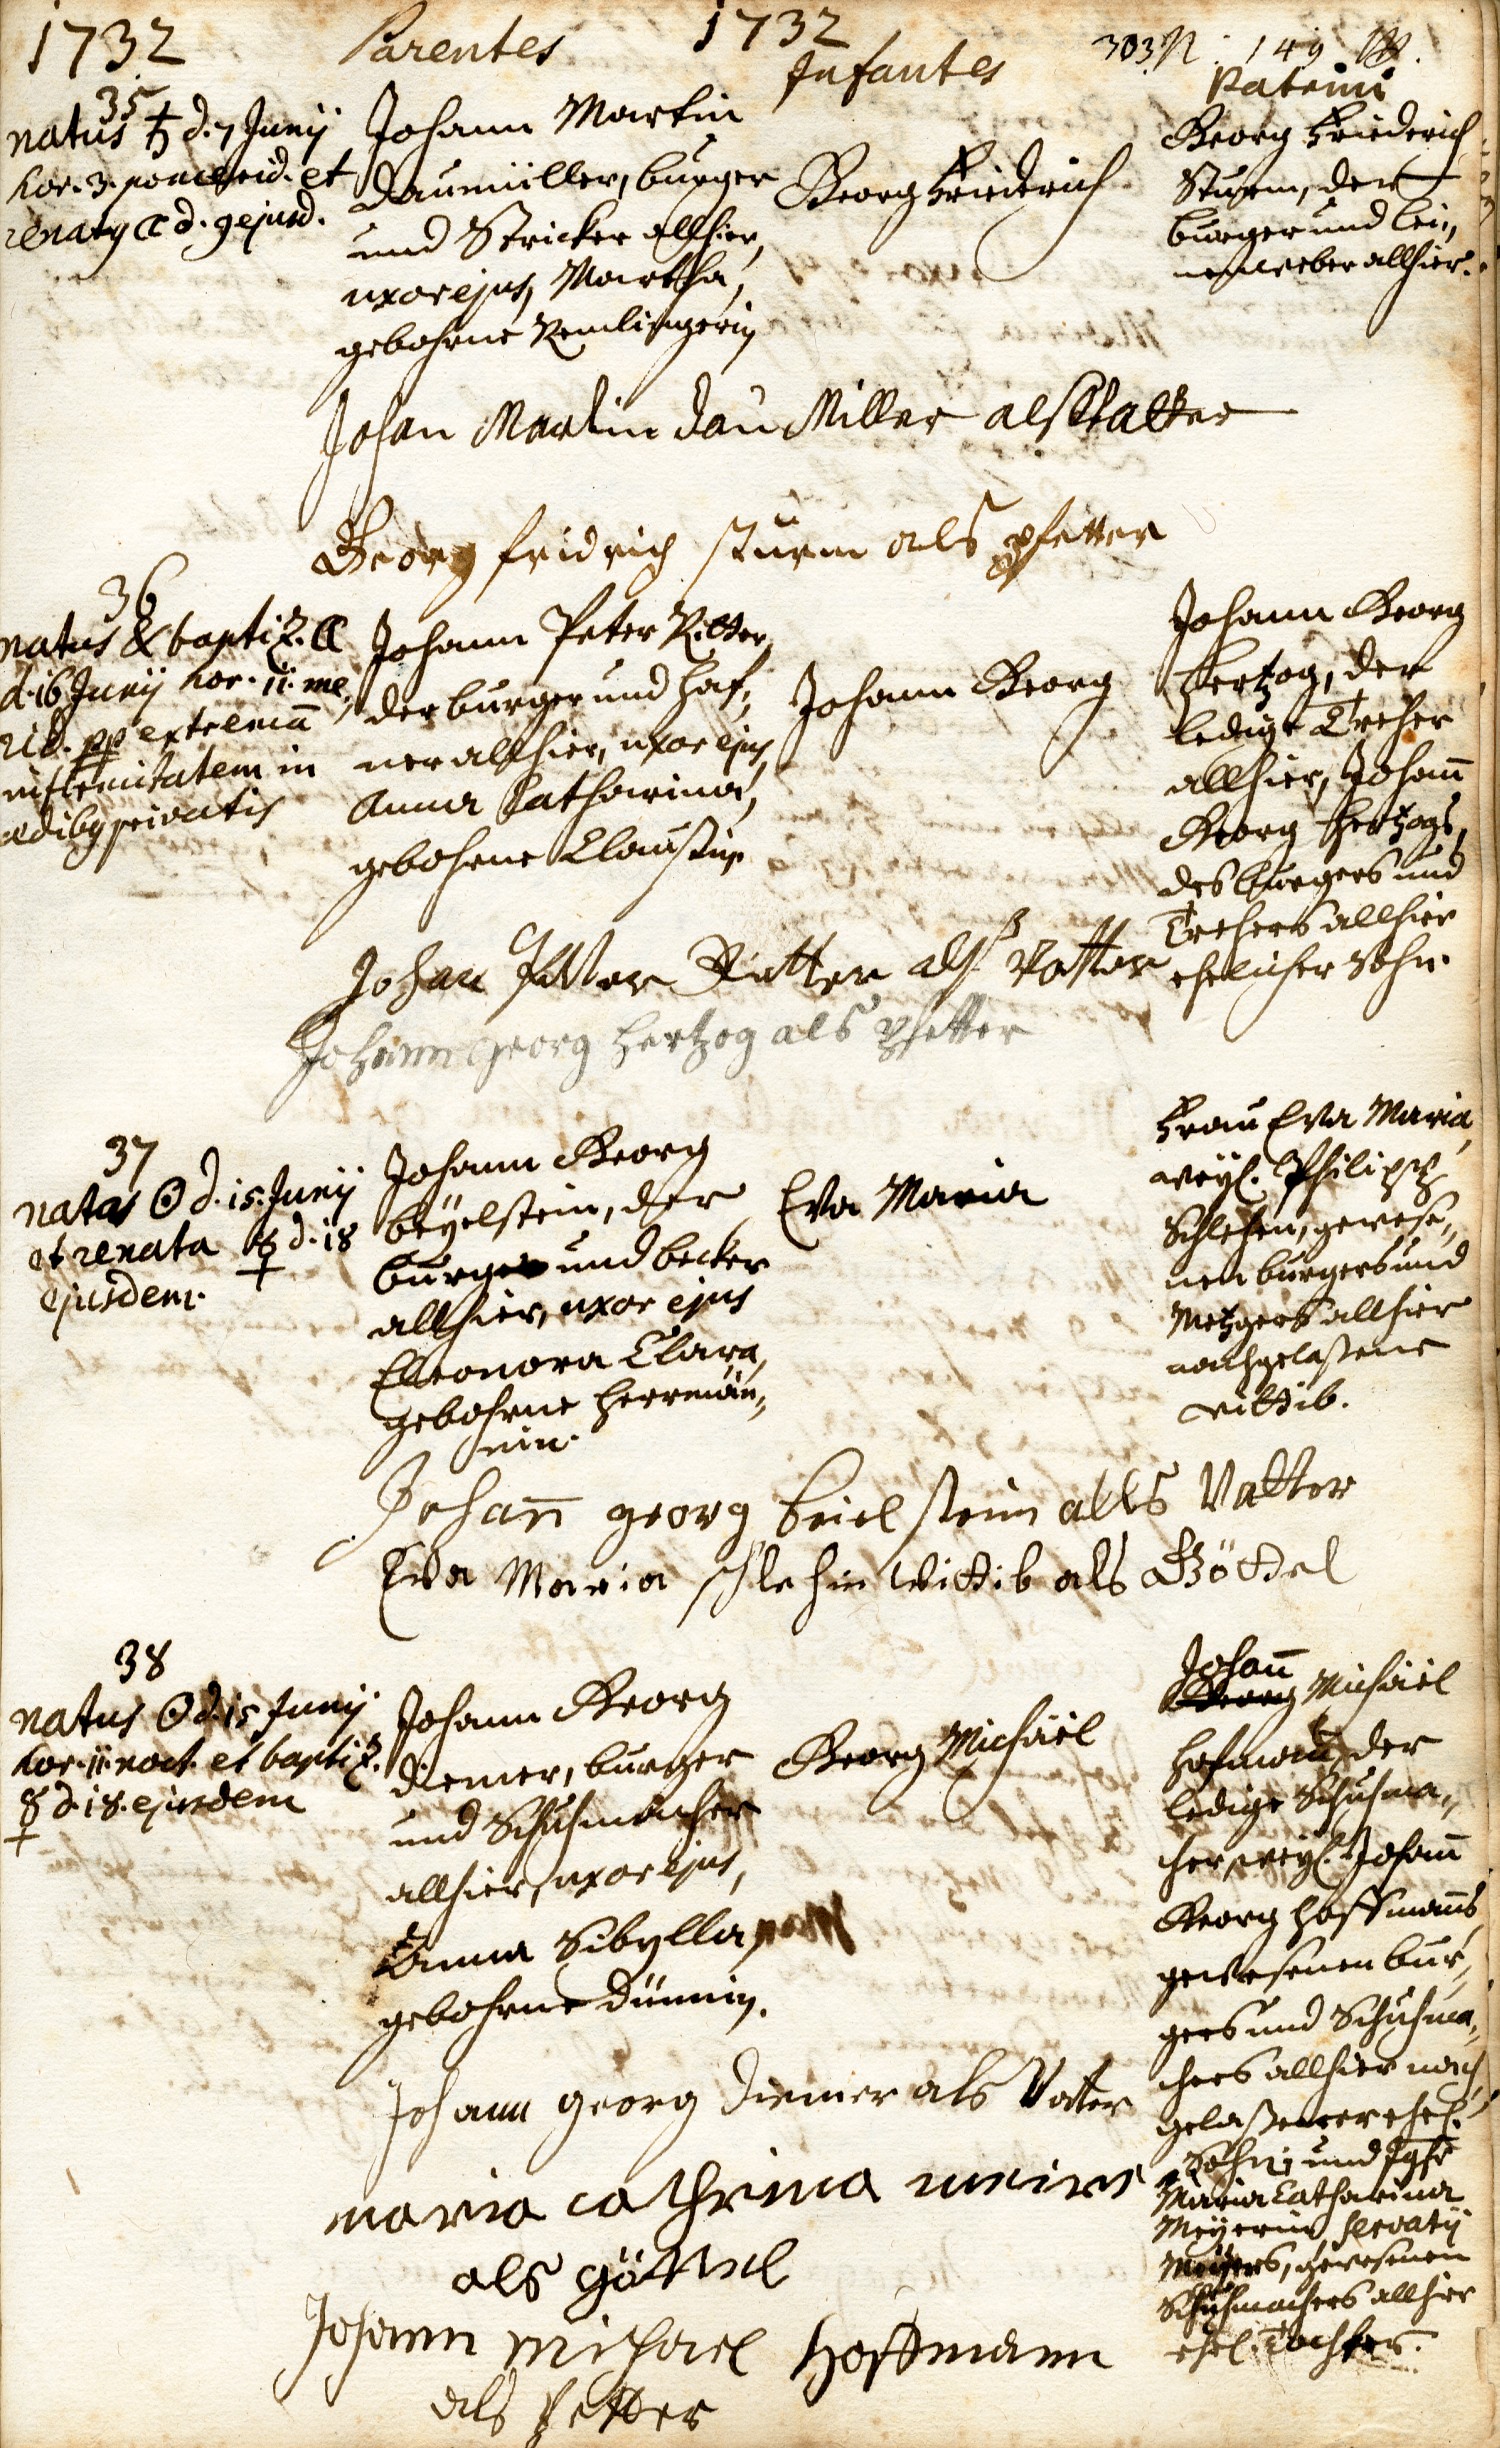 1732 Parentes 1732 Infantes 303 N. 149
Patrini
35
natus ♄ d. 7 Junij
hor. 3. pomerid. et
renatg ☾ d. 9 ejusd.
Johann Martin
Daumüller, burger
und Stricker allhier,
uxor ejus, Martha,
gebohrne Remlingerin
Georg Friederich
Georg Friederich
Sturm, der
burger und lei„
nenweber allhier.
Johan Martin dau Miller alß Vatter
Georg fridrich sturm als pfetter
36
natus & baptiz. ☾
d. 16 Junij hor. 11. me„
rid. pp extremā
infirmitatem in
ædibg privatis
Johann Peter Ritter,
der burger und haf„
ner allhier, uxor ejus
Anna Catharina,
gebohrne Claussin
Johann Georg
Johann Georg
Hertzog, der
ledige Treher
allhier, Johann̄
Georg Hertzogs,
des burgers und
Trehers allhier
ehelicher Sohn.
Johan Petter Ritter alß Vatter
Johann Georg Hertzog als pfetter
37
natas ☉ d. 15. Junij
et renata ☿ d. 18
ejusdem.
Johann Georg
beyelstein, der
burger und becker
allhier, uxor ejus
Eleonora Clara,
gebohrne Herrmän„
nin.
Eva Maria
Frau Eva Maria,
weyl. Philipp
Schlehen, gewese„
nen burgers und
Metzgers allhier
nachgelaßene
Wittib.
Johan̄ georg beiel stein alls Vatter
Eva Maria schlehin wittib als Göttel
38
natus ☉ d. 15 Junij
hor. 11. noct. et baptiz.
☿ d. 18. ejusdem
Johann Georg
Diemer, burger
und Schuhmacher
allhier, uxor ejus,
Anna Sibylla,
gebohrne Dümmin.
Georg Michäel
Johan̄
Georg Michäel
Hofmann, der
ledige Schuhma„
cher, weyl. Johan̄
Georg Hoffmanns
gewesenen bur„
gers und Schuhma„
chers allhier nach
gelaßener ehel.
Sohn; und Jgfr
Maria Catharina
Meyerin, Servatij
Meyers, gewesenen
Schuhmachers allhier
ehel. Tochter.
Johann georg diemer als Vatter
maria cathrina meirin
als göttel
Johann michael Hoffmann
als Petter